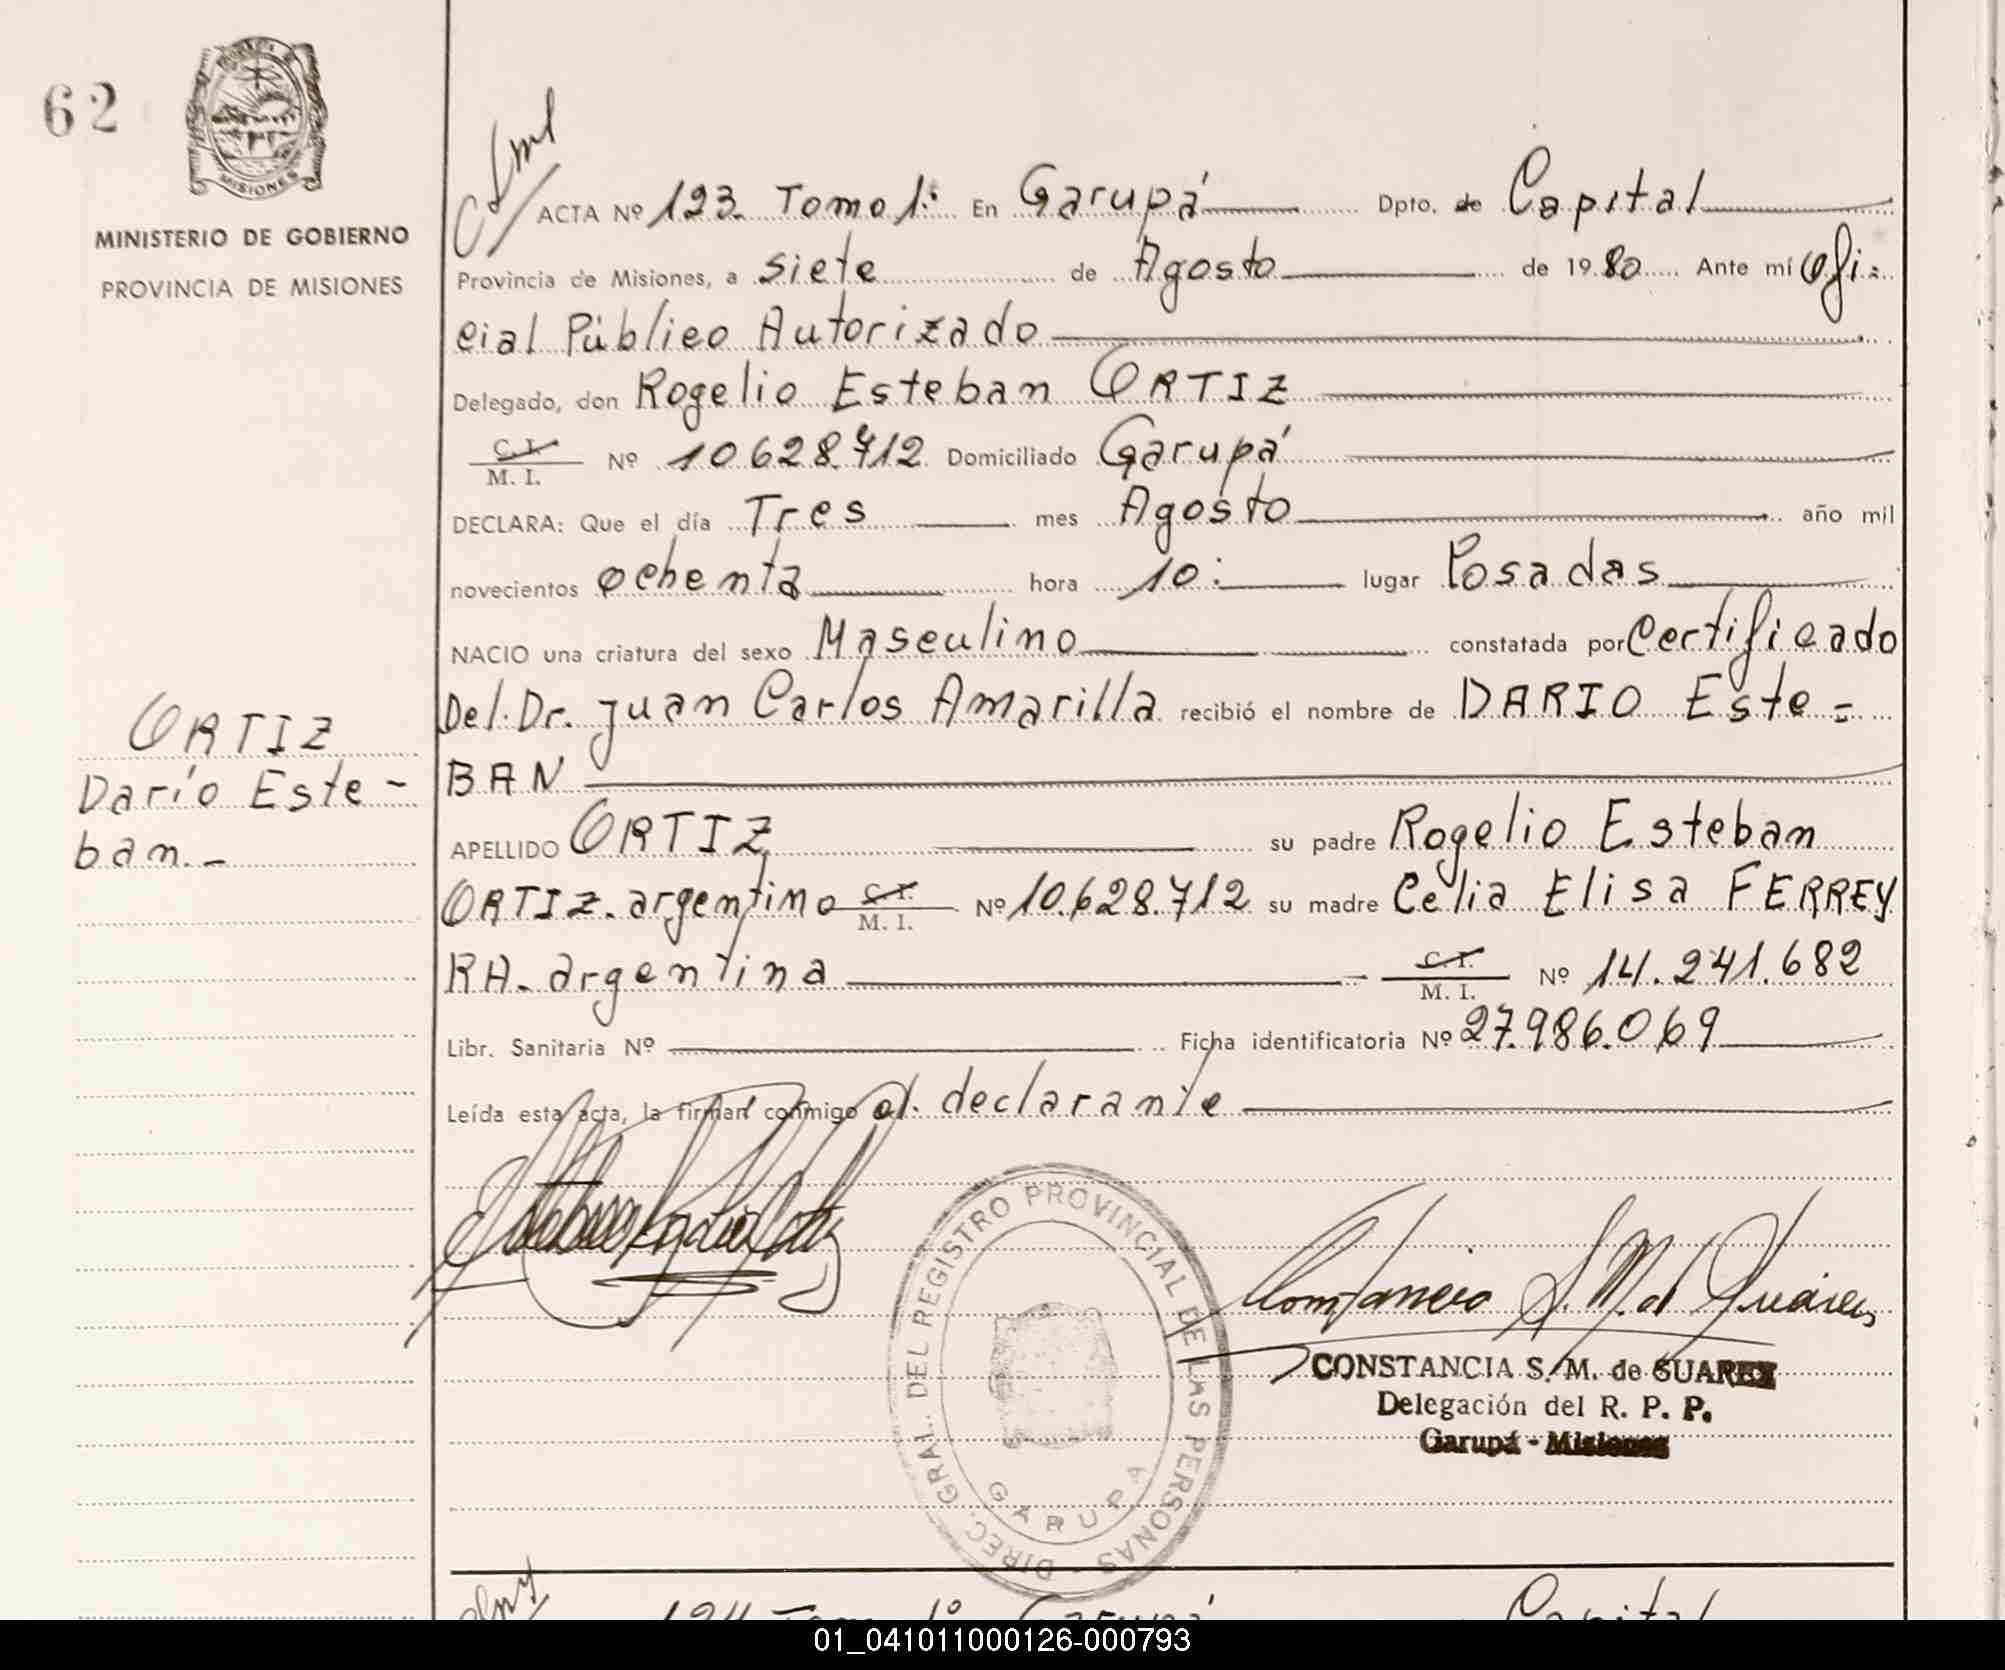 62
MISIONES
MINISTERIO DE GOBIERNO
PROVINCIA DE MISIONES
ACTA Nº 123 Tomo 1º En Garupá Dpto. de Capital
Provincia de Misiones, a siete de Agosto de 1980 Ante mí Ofi=
cial Público Autorizado
Delegado, don Rogelio Esteban ORTIZ
C. I. / M. I. Nº 10628.712 Domiciliado Garupá
DECLARA: Que el día Tres mes Agosto año mil
novecientos ochenta hora 10: lugar Posadas
NACIO una criatura del sexo Masculino constatada por Certificado
Del Dr. Juan Carlos Amarilla recibió el nombre de DARIO Este=
BAN
APELLIDO ORTIZ su padre Rogelio Esteban
ORTIZ. argentino C. I. / M. I. Nº 10.628.712 su madre Celia Elisa FERREY
RA. argentina C. I. / M. I. Nº 14.241.682
Libr. Sanitaria Nº Ficha identificatoria Nº 27.986.069
Leída esta acta, la firman conmigo el declarante
ORTIZ
Darío Este-
ban.-
DIREC. GRAL. DEL REGISTRO PROVINCIAL DE LAS PERSONAS -
GARUPA
Constancia S. M. de Suárez
CONSTANCIA S. M. de SUAREZ
Delegación del R. P. P.
Garupá - Misiones
124 Tomo 1º Garupá Capital
01_041011000126-000793